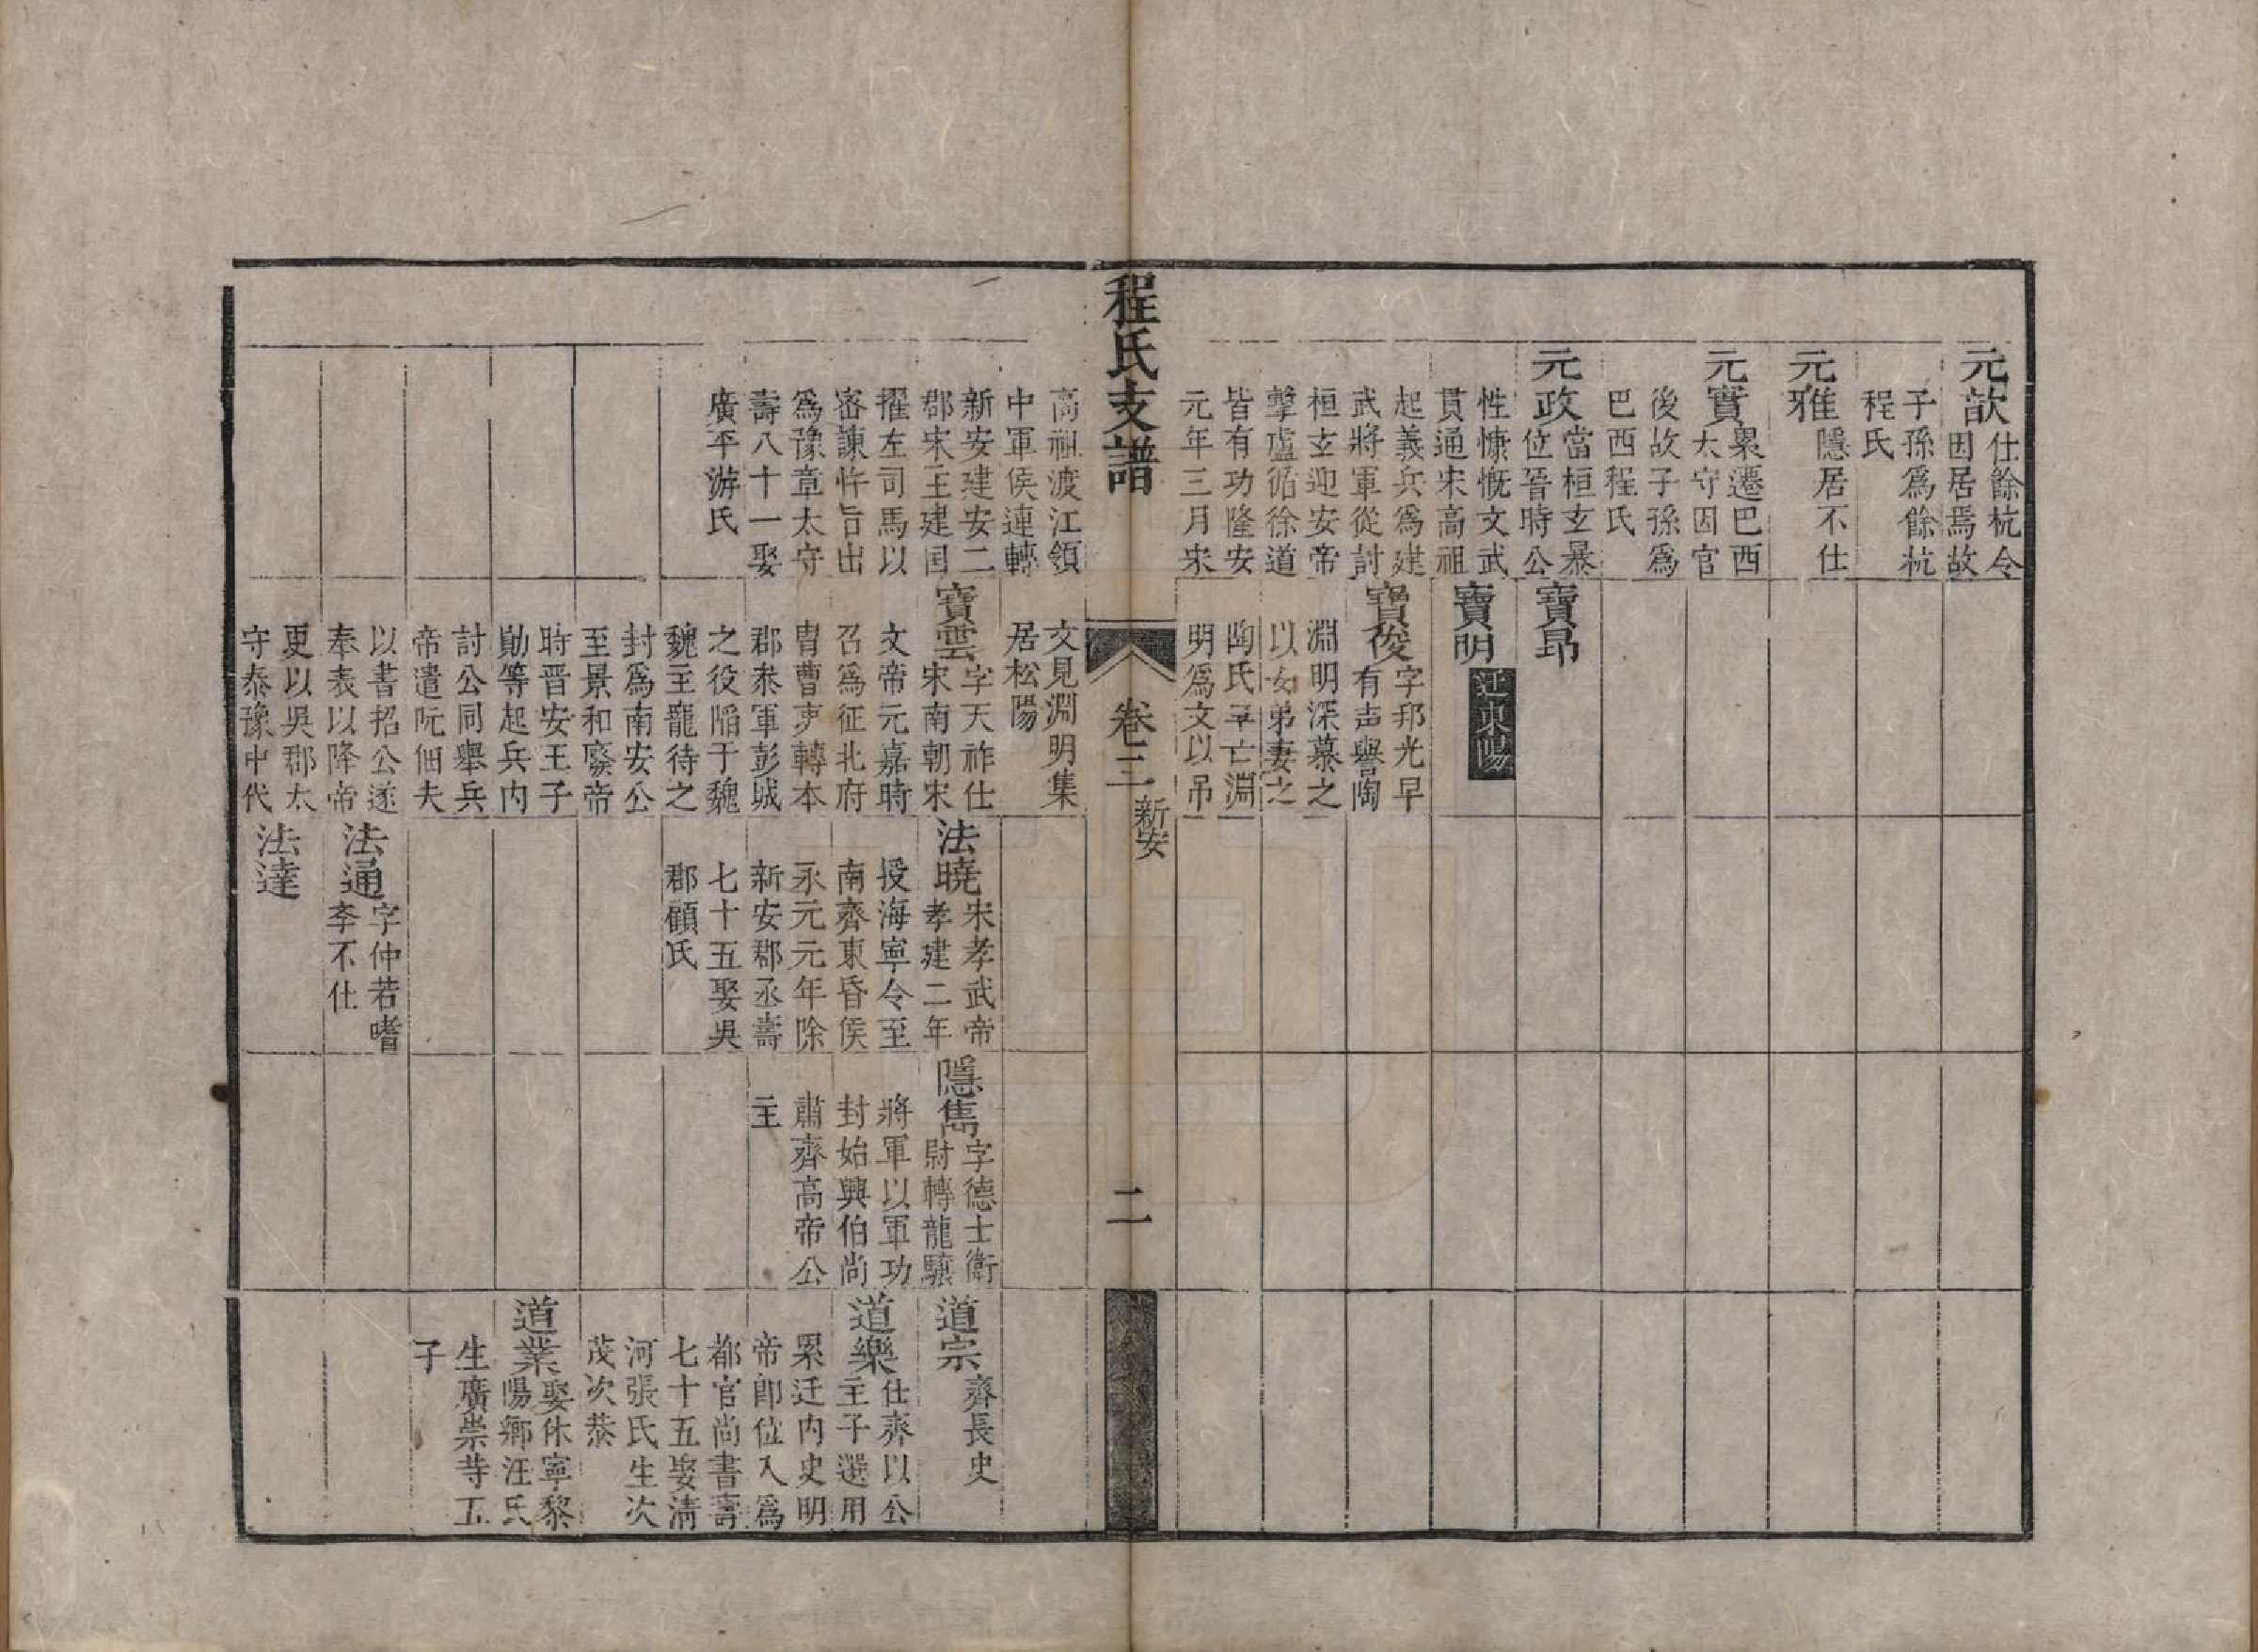 元歆
仕餘杭令
因居焉故
子孫爲餘杭
程氏
元雅
隱居不仕
元實
累遷巴西
太守因官
後故子孫爲
巴西程氏
元政
當桓玄暴
位晉時公
性慷慨文武
貫通宋高祖
起義兵爲建
武將軍從討
桓玄迎安帝
擊盧循徐道
皆有功隆安
元年三月宋
寶昂
寶明
迁東陽
寶俊
字邦光早
有声譽陶
淵明深慕之
以女弟妻之
陶氏早亡淵
明爲文以吊
程氏支譜
卷三
新安
二
高祖渡江領
中軍侯連轉
新安建安二
郡宋主建国
擢左司馬以
密諫忤旨出
爲豫章太守
壽八十一娶
廣平游氏
文見淵明集
居松陽
寶雲
字天祚仕
宋南朝宋
文帝元嘉時
召爲征北府
胄曹叅轉本
郡叅軍彭城
之役陷于魏
魏主寵待之
封爲南安公
至景和廢帝
時晋安王子
勛等起兵内
討公同舉兵
帝遣阮佃夫
以書招公遂
奉表以降帝
更以吳郡太
守泰豫中代
法曉
宋孝武帝
孝建二年
授海寧令至
南齊東昏侯
永元元年除
新安郡丞壽
七十五娶吳
郡顧氏
法通
字仲若嗜
李不仕
法達
隱雋
字德士衛
尉轉龍驤
將軍以軍功
封始興伯尚
蕭齊高帝公
主
道宗
齊長史
道樂
仕齊以公
主子選用
累迁内史明
帝即位入爲
都官尚書壽
七十五娶清
河張氏生次
茂次恭
道業
娶休寧黎
陽鄉汪氏
生廣崇等五
子